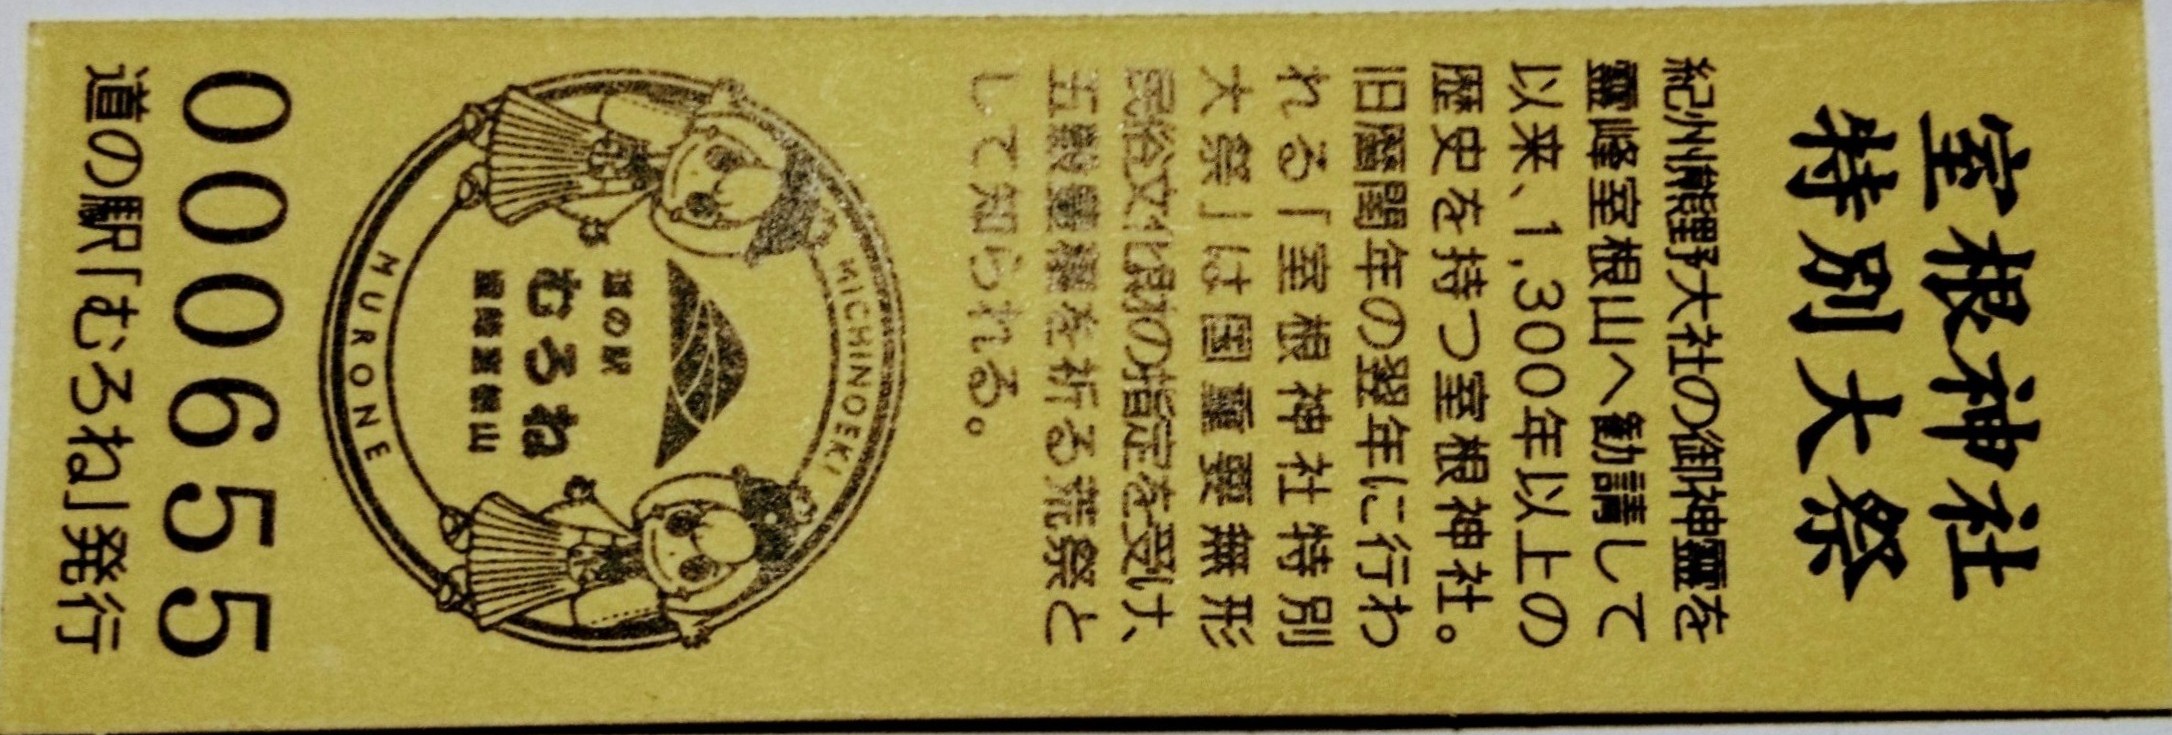 室根神社
特別大祭
紀州熊野大社の御神霊を
霊峰室根山へ勧請して
以来、1,300年以上の
歴史を持つ室根神社。
旧暦閏年の翌年に行わ
れる「室根神社特別
大祭」は国重要無形
民俗文化財の指定を受け、
五穀豊穣を祈る荒祭と
して知られる。
MICHINOEKI
道の駅
むろね
霊峰室根山
MURONE
000655
道の駅「むろね」発行